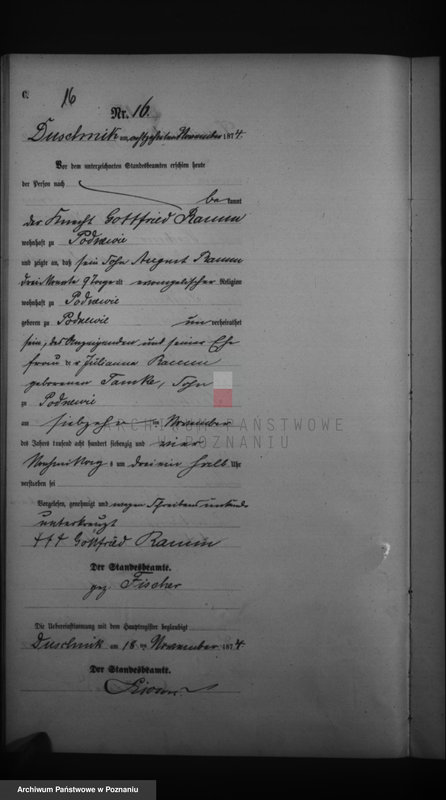 C.
16
Nr. 16.
Duschnik am achtzehnten November 1874.
Vor dem unterzeichneten Standesbeamten erschien heute
der Person nach
bekannt
der Knecht Gottfried Ramm
wohnhaft zu Podrzewie
und zeigte an, daß sein Sohn August Ramm
drei Monate 9 Tage alt evangelischer Religion
wohnhaft zu Podrzewie
geboren zu Podrzewie unverheirathet
sein, des Anzeigenden, und seiner Ehe
frau Julianna Ramm
geborenen Tamke, Sohn
zu Podrzewie
am siebzehn ten November
des Jahres tausend acht hundert siebenzig und vier
Nachmittag s um drei ein halb Uhr
verstorben sei
Vorgelesen, genehmigt und wegen Schreibensunkunde
unterkreuzt
+++ Gottfried Ramm
Der Standesbeamte.
gez. Fischer
Die Uebereinstimmung mit dem Hauptregister beglaubigt
Duschnik am 18 ten November 1874
Der Standesbeamte.
ARCHIWUM PAŃSTWOWE
W POZNANIU
Archiwum Państwowe w Poznaniu